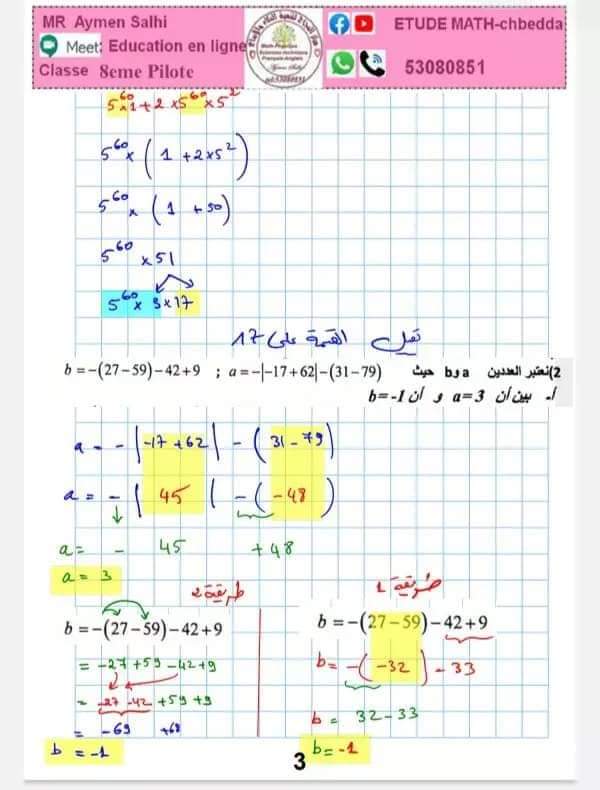 MR Aymen Salhi
Meet: Education en ligne
Classe 8eme Pilote
ETUDE MATH-chbedda
53080851
5^60×1+2×5^60×5^2
5^60×(1+2×5^2)
5^60×(1+50)
5^60×51
5^60×3×17
تقبل القسمة على 17
2)نعتبر العددين a و b حيث a=-|-17+62|-(31-79) ; b=-(27-59)-42+9
أ- بين أن a=3 و أن b=-1
a=-|-17+62|-(31-79)
a=-|45|-(-48)
a=-45+48
a=3
طريقة 1
b=-(27-59)-42+9
b=-(-32)-33
b=32-33
b=-1
طريقة 2
b=-(27-59)-42+9
=-27+59-42+9
=-27-42+59+9
=-69+68
b=-1
3